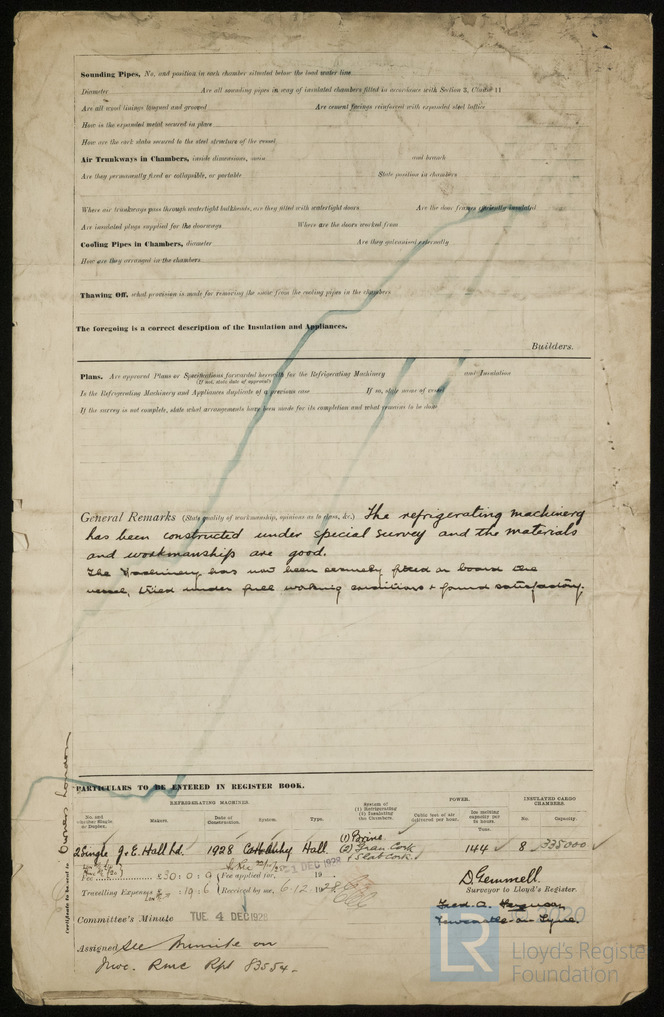 Sounding Pipes, No. and position in each chamber situated below the load water line
Diameter Are all sounding pipes in way of insulated chambers fitted in accordance with Section 3, Clause 11
Are all wood linings tongued and grooved Are cement facings reinforced with expanded steel lattice
How is the expanded metal secured in place
How are the cork slabs secured to the steel structure of the vessel
Air Trunkways in Chambers, inside dimensions, main and branch
Are they permanently fixed or collapsible, or portable State position in chambers
Where air trunkways pass through watertight bulkheads, are they fitted with watertight doors Are the door frames efficiently insulated
Are insulated plugs supplied for the doorways Where are the doors worked from
Cooling Pipes in Chambers, diameter Are they galvanised externally
How are they arranged in the chambers
Thawing Off, what provision is made for removing the snow from the cooling pipes in the chambers
The foregoing is a correct description of the Insulation and Appliances.
Builders.
Plans. Are approved Plans or Specifications forwarded herewith for the Refrigerating Machinery and Insulation
(If not, state date of approval)
Is the Refrigerating Machinery and Appliances duplicate of a previous case If so, state name of vessel
If the survey is not complete, state what arrangements have been made for its completion and what remains to be done
General Remarks (State quality of workmanship, opinions as to class, &c.) The refrigerating machinery
has been constructed under special survey and the materials
and workmanship are good.
The Machinery has been fitted on board the
vessel, tried under full working conditions & found satisfactory.
Certificate to be sent to Owners London
PARTICULARS TO BE ENTERED IN REGISTER BOOK.
REFRIGERATING MACHINES. POWER. INSULATED CARGO CHAMBERS.
No. and whether Single or Duplex. Makers. Date of Construction. System. Type. System of (1) Refrigerating (2) Insulating the Chambers. Cubic feet of air delivered per hour. Ice melting capacity per 24 hours. No. Capacity.
Tons.
(1) Brine
2 Single J. & E. Hall Ld. 1928 Hall (2) Gran Cork 144 8 335000
& Slab Cork
Fee £30 : 0 : 0 Fee applied for, 3 DEC 1928 19
D. Gemmell.
Travelling Expenses £ : 19 : 6 Received by me, 6.12.1928
Surveyor to Lloyd's Register.
Fred. A. Ferguson
Committee's Minute TUE 4 DEC 1928
Newcastle-on-Tyne.
Assigned See Minute on
Nwc. Rmc Rpt 83554.
LR Lloyd's Register
Foundation